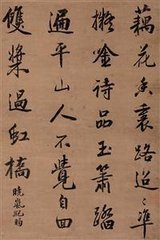 藕花香裏路迢々準
擬詩品玉簫踏
遍平山人不覺自回
雙槳過虹橋
曉嵐紀昀